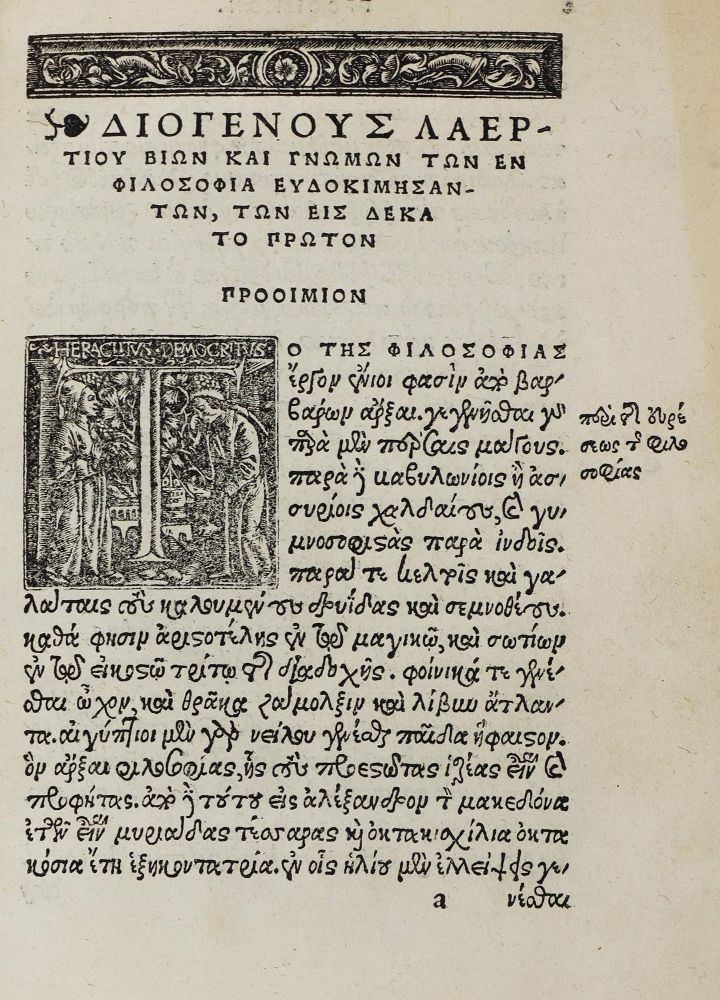 ΔΙΟΓΕΝΟΥΣ ΛΑΕΡ-
ΤΙΟΥ ΒΙΩΝ ΚΑΙ ΓΝΩΜΩΝ ΤΩΝ ΕΝ
ΦΙΛΟΣΟΦΙΑ ΕΥΔΟΚΙΜΗΣΑΝ-
ΤΩΝ, ΤΩΝ ΕΙΣ ΔΕΚΑ
ΤΟ ΠΡΩΤΟΝ
ΠΡΟΟΙΜΙΟΝ
HERACLITVS DEMOCRITVS
ΤΟ ΤΗΣ ΦΙΛΟΣΟΦΙΑΣ
ἔργον ἔνιοι φασὶν ἀπὸ βαρ-
βάρων ἄρξαι. γεγενῆσθαι γὰρ
παρὰ μὲν πέρσαις μάγους.
παρὰ δὲ βαβυλωνίοις ἢ ἀσ-
συρίοις χαλδαίους, καὶ γυ-
μνοσοφιςὰς παρὰ ἰνδοῖς.
παρά τε κελτοῖς καὶ γα-
λάταις τοὺς καλουμένους δρυΐδας καὶ σεμνοθέους.
καθά φησιν ἀριςοτέλης ἐν τῷ μαγικῷ, καὶ σωτίων
ἐν τῷ εἰκοςῷ τρίτῳ τῆς διαδοχῆς. φοίνικά τε γενέ-
σθαι ὦχον, καὶ θρᾶκα ζάμολξιν καὶ λίβυν ἄτλαν-
τα. αἰγύπτιοι μὲν γὰρ νείλου γενέσθαι παῖδα ἥφαιςον.
ὃν ἄρξαι φιλοσοφίας, ἧς τοὺς προεςῶτας ἱερέας εἶναι καὶ
προφήτας. ἀπὸ δὲ τούτου εἰς ἀλέξανδρον τὸν μακεδόνα
ἐτῶν εἶναι μυριάδας τέσσαρας καὶ ὀκτακισχίλια ὀκτα
κόσια ἔτη ἑξηκοντατρία. ἐν οἷς ἡλίου μὲν ἐλλείψεις γε-
a νέσθαι
περὶ τῆς εὑρέ
σεως τῆς φιλο
σοφίας